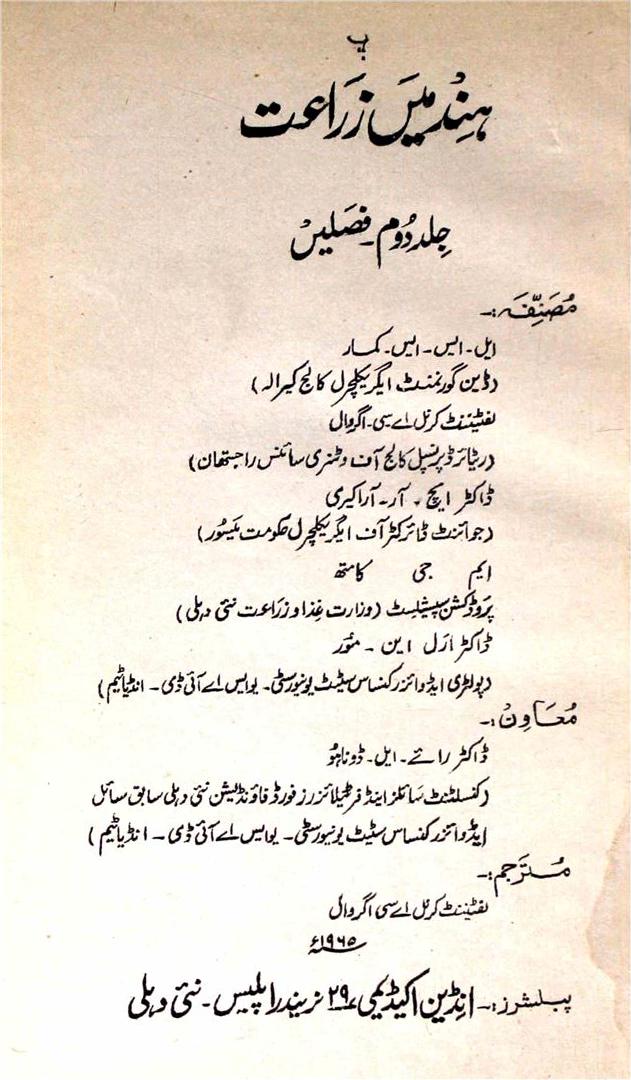 ب
ہند میں زراعت
جلد دوم۔ فصلیں
مصنفہ:۔
ایل۔ ایس۔ ایس۔ کمار
(ڈین گورنمنٹ ایگریکلچرل کالج کیرالہ)
لفٹیننٹ کرنل اے سی۔ اگروال
(ریٹائرڈ پرنسپل کالج آف وٹنری سائنس راجستھان)
ڈاکٹر ایچ۔ آر۔ آراکیری
(جوائنٹ ڈائرکٹر آف ایگریکلچرل حکومت میسور)
ایم جی کامتھ
پروڈکشن سپیشلسٹ (وزارت غذا و زراعت نئی دہلی)
ڈاکٹر ارل این۔ مور
(پولٹری ایڈوائزر کنساس سٹیٹ یونیورسٹی۔ یو ایس اے آئی ڈی۔ انڈیا ٹیم)
معاون:۔
ڈاکٹر رائے۔ ایل۔ ڈوناہو
(کنسلٹنٹ سائلز اینڈ فرٹیلائزرز فورڈ فاؤنڈیشن نئی دہلی سابق سائل
ایڈوائزر کنساس سٹیٹ یونیورسٹی۔ یو ایس اے آئی ڈی۔ انڈیا ٹیم)
مترجم:۔
لفٹیننٹ کرنل اے سی اگروال
۱۹۶۵ء
پبلشرز:۔ انڈین اکیڈیمی، ۲۹ نریندرا پلیس۔ نئی دہلی